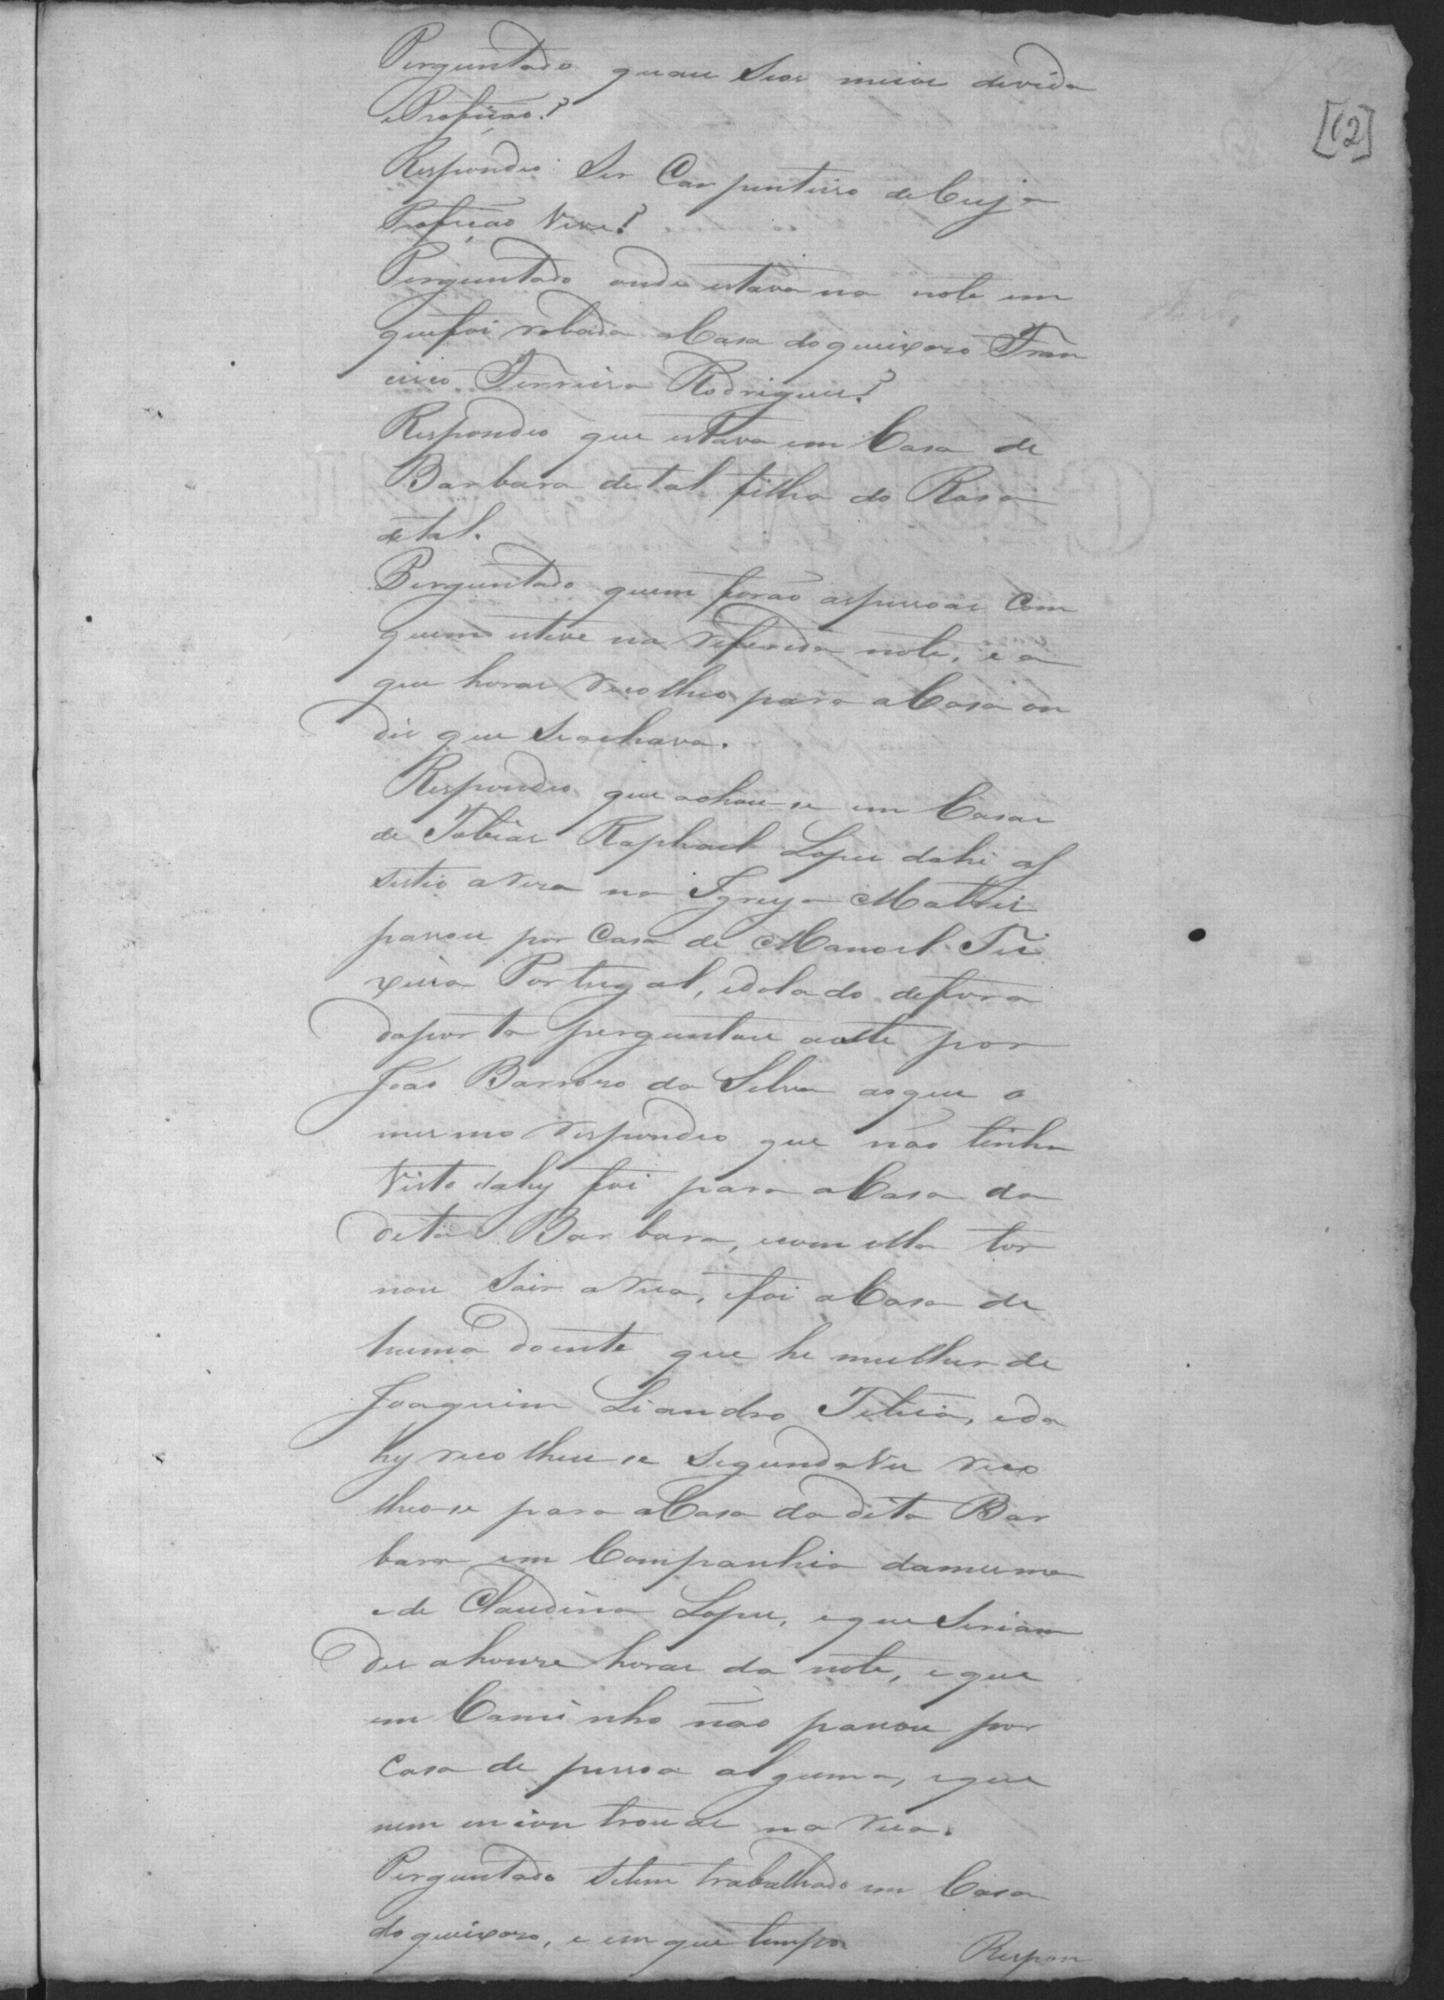 [12]
Perguntado quaes Seos meios devida
e Profição?
Respondeo Ser Carpinteiro de Cuja
Profição Vive?
Perguntado onde estava na note em
que foi robada a Casa do queixoso Fran
cisco Ferreira Rodrigues?
Respondeo que estava em Casa de
Barbara detal filha do Rosa
detal.
Perguntado quem forão as pessoas Com
quem esteve na referida note, e a
que horas recolheo para a Casa on
de que Se achava.
Respondeo que achou-se em Casa
de Tobias Raphael Lopes dahi as
sistio a resa na Igreja Matris
passou por Casa de Manoel Tei
xeira Portugal, e do lado de fora
da porta perguntou a este por
João Barroso da Silva ao que o
mesmo respondeo que não tinha
Visto dahy foi para a Casa da
dita Barbara, e com ella tor
nou Sair a rua, e foi a Casa de
huma doente que he mulher de
Joaquim Liandro e da
hy recolheu se Segunda Ves reco
lheo-se para a Casa da dita Bar
bara em Companhia da mesma
e de Claudina Lopes, e que Seriam
des a honze horas da note, e que
em Caminho não passou por
Casa de pessoa alguma, e que
nem encontrou se na rua.
Perguntado Setem trabalhado em Casa
do queixoso, e em que tempo
Respon